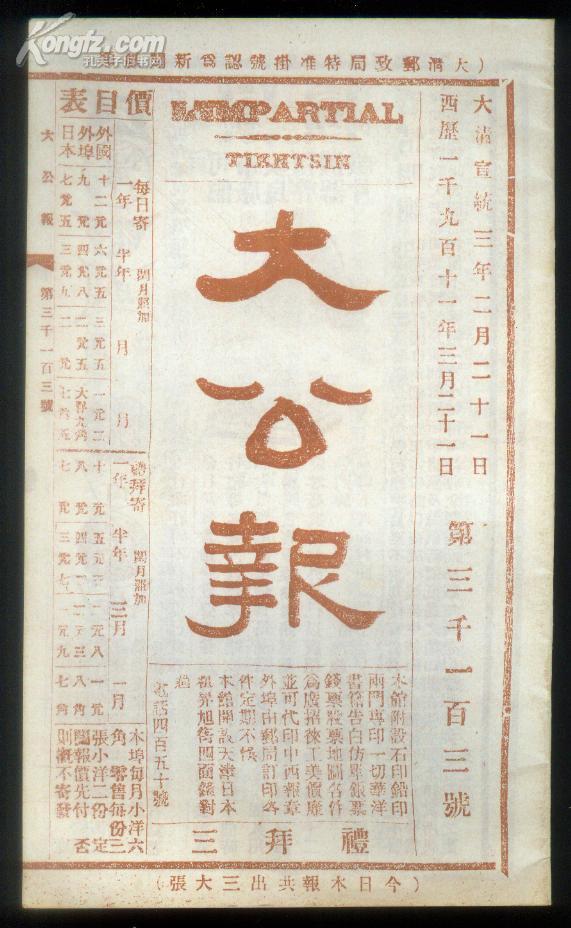 Kongfz.com
孔夫子旧书网
(大清郵政局特准掛號認爲新
大清宣統三年二月二十一日
西歷一千九百十一年三月二十一日
第三千一百三號
L'IMPARTIAL
TIENTSIN
大公報
本館附設石印鉛印
兩門專印一切華洋
書籍告白仿單銀票
錢票股票地圖名片
爲廣招徠工美價廉
並可代印中西報章
外埠由郵局訂印各
件定期不悞
本館開設天津日本
租界旭街四面鐘對
過
電話四百五十號
禮拜三
價目表
每日寄
閏月照加
一年
半年
月
月
外國
十二元
六元五
三元五
一元二
外埠
九元
四元八
二元五
大洋九角
日本
七元五
三元九
二元
七角五
禮拜寄
閏月照加
一年
半年
三月
一月
十元
八元
七元
本埠每月小洋六
角零售每份三
張小洋二份定
閱報價先付否
則概不寄發
大公報
第三千一百三號
(今日本報共出三大張)